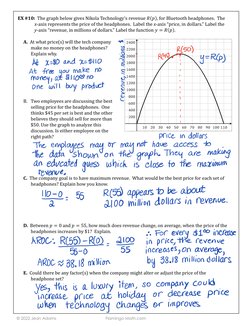 EX #10: The graph below gives Nikola Technology's revenue R(p), for Bluetooth headphones. The
x-axis represents the price of the headphones. Label the x-axis "price, in dollars." Label the
y-axis "revenue, in millions of dollars." Label the function y = R(p).
A. At what price(s) will the tech company
make no money on the headphones?
Explain why.
At x=$0 and x=$110
At free you make no
money, at $110 no
one will buy product
B. Two employees are discussing the best
selling price for the headphones. One
thinks $45 per set is best and the other
believes they should sell for more than
$50. Use the graph to analyze this
discussion. Is either employee on the
right path?
revenue, in millions $
2400
2200
2000
1800
1600
1400
1200
1000
800
600
400
200
R(45)
R(50)
y=R(p)
10 20 30 40 50 60 70 80 90 100 110
price in dollars
The employees may or may not have access to
the data shown on the graph. They are making
an educated guess which is close to the maximum
revenue.
C. The company goal is to have maximum revenue. What would be the best price for each set of
headphones? Explain how you know.
110-0/2 = 55
R(55) appears to be about
2100 million dollars in revenue.
D. Between p = 0 and p = 55, how much does revenue change, on average, when the price of the
headphones increases by $1? Explain.
AROC: R(55)-R(0)/55-0 = 2100/55
AROC ≈ 38.18 million
For every $1.00 increase
in price, the revenue
increases, on average,
by 38.18 million dollars.
E. Could there be any factor(s) when the company might alter or adjust the price of the
headphone set?
Yes, this is a luxury item, so company could
increase price at holiday or decrease price
when technology changes, or improves.
© 2022 Jean Adams
Flamingo Math.com